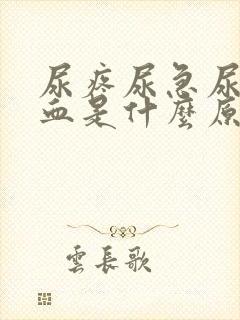 尿疼尿急尿
血是什麼原
雲長歌